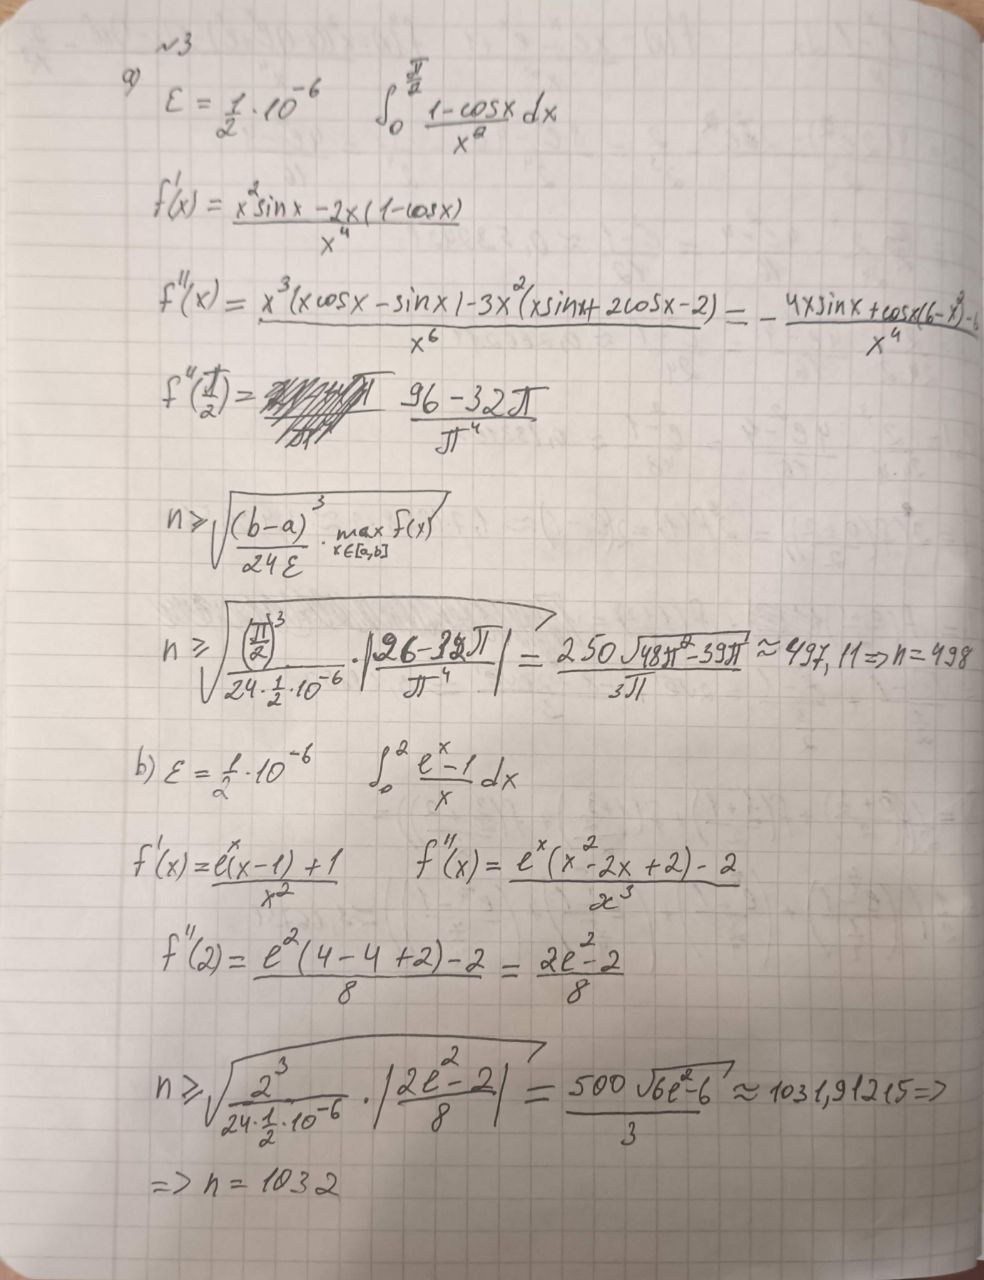 №3
a) ε = 1/2 · 10^-6   ∫_0^(π/2) (1-cosx)/x^2 dx
f'(x) = (x^2 sinx - 2x(1-cosx))/x^4
f''(x) = (x^3(xcosx - sinx) - 3x^2(xsinx + 2cosx - 2))/x^6 = - (4xsinx + cosx(6-x^2) - 6)/x^4
f''(π/2) = (96 - 32π)/π^4
n ≥ √((b-a)^3/(24ε) · max_(x∈[a,b]) f(x))
n ≥ √((π/2)^3/(24·1/2·10^-6) · |(26-32π)/π^4|) = (250√(48π^2-39π))/(3π) ≈ 497,11 => n = 498
b) ε = 1/2 · 10^-6   ∫_0^2 (e^x - 1)/x dx
f'(x) = (e^x(x-1) + 1)/x^2   f''(x) = (e^x(x^2 - 2x + 2) - 2)/x^3
f''(2) = (e^2(4 - 4 + 2) - 2)/8 = (2e^2 - 2)/8
n ≥ √(2^3/(24·1/2·10^-6) · |(2e^2 - 2)/8|) = (500√(6e^2-6))/3 ≈ 1031,91215 =>
=> n = 1032